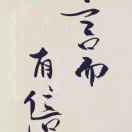 言而
有信